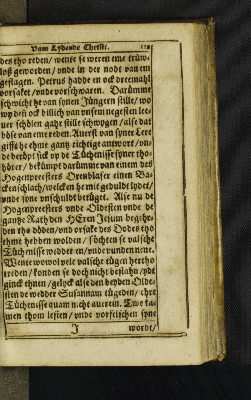 Vam Lydende Christi. 121
des tho reden/ wente se weren eme trüw-
loß geworden/ vnde in der nodt van em
geflagen. Petrus hadde en ock dreemahl
vorsaket/ vnde vorschwaren. Darümme
schwicht he van synen Jüngern stille/ wo
wy den ock billich van vnsem negesten lee-
uer schölen gahr stille schwygen/ alse dat
böse van eme reden. Auerst van syner Lere
gifft he ehme gantz richtige antwort/ vn-
de beröpt sick vp de Tüchenisse syner tho-
hörer/ bekümpt darümme van einem des
Hogenpresters Orenblaser einen Ba-
ckenschlach/ welcken he mit geduldt lydet/
vnde syne vnschuldt betüget. Alse nu de
Hogenpresters vnde Oldesten vnde de
gantze Rath den HEren Jesum begehr-
den tho döden/ vnd orsake des Dodes tho
ehme hebben wolden/ söchten se valsche
Tüchenisse wedder en/ vnde vunden nene.
Wente wowol vele valsche tügen hertho
treden/ konden se doch nicht bestahn/ ydt
ginck ehnen/ gelyck alse den beyden Olde-
sten de wedder Susannam tügeden/ ehre
Tüchenisse quam nicht auerein. Twe ka-
men thom lesten/ vnde vorfelschen syne
J wordt/